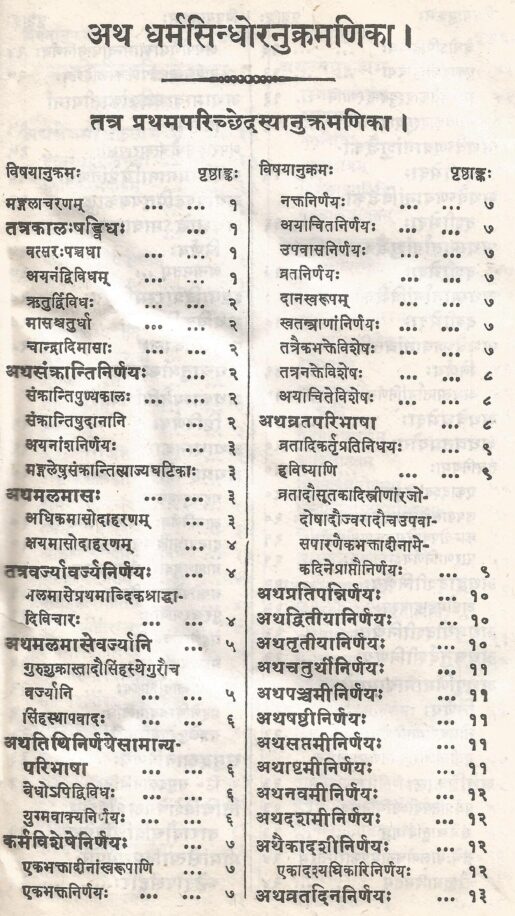 अथ धर्मसिन्धोरनुक्रमणिका ।
तत्र प्रथमपरिच्छेदस्यानुक्रमणिका ।
विषयानुक्रमः पृष्ठाङ्कः
मङ्गलाचरणम् .... ... १
तत्रकालःषड्विधः ... १
वत्सरःपञ्चधा .... ... १
अयनंद्विविधम् .... ... १
ऋतुर्द्विविधः .... ... २
मासश्चतुर्धा .... ... २
चान्द्रादिमासाः .... ... २
अथसंक्रान्तिनिर्णयः ... २
संक्रान्तिपुण्यकालः ... २
संक्रान्तिषुदानानि ... २
अयनांशनिर्णयः ... ३
मङ्गलेषुसंक्रान्तित्याज्यघटिकाः ३
अथमलमासः .... ... ३
अधिकमासोदाहरणम् ... ३
क्षयमासोदाहरणम् ... ४
तत्रवर्ज्यावर्ज्यनिर्णयः ... ४
मलमासेप्रथमाब्दिकश्राद्धा-
दिविचारः .... ... ४
अथमलमासेवर्ज्यानि ... ५
गुरुशुक्रास्तादौसिंहस्थेगुरौच
वर्ज्यानि .... ... ५
सिंहस्थापवादः .... ... ६
अथतिथिनिर्णयेसामान्य-
परिभाषा .... ... ६
वेधोऽपिद्विविधः .... ... ६
युग्मवाक्यनिर्णयः .... ... ६
कर्मविशेषेनिर्णयः .... ... ७
एकभक्तादीनांस्वरूपाणि ... ७
एकभक्तनिर्णयः .... ... ७
विषयानुक्रमः पृष्ठाङ्कः
नक्तनिर्णयः .... ... ७
अयाचितनिर्णयः .... ... ७
उपवासनिर्णयः .... ... ७
व्रतनिर्णयः .... ... ७
दानस्वरूपम् .... ... ७
स्वतन्त्राणांनिर्णयः .... ... ७
तत्रैकभक्तेविशेषः .... ... ७
तत्रनक्तेविशेषः .... ... ८
अयाचितेविशेषः .... ... ८
अथव्रतपरिभाषा .... ... ८
व्रतादिकर्तृप्रतिनिधयः ... ९
हविष्याणि .... ... ९
व्रतादौसूतकादिस्त्रीणांरजो-
दोषादौज्वरादौचउपवा-
सपारणैकभक्तादीनामे-
कदिनेप्राप्तौनिर्णयः ... ९
अथप्रतिपन्निर्णयः ... १०
अथद्वितीयानिर्णयः ... १०
अथतृतीयानिर्णयः ... ११
अथचतुर्थीनिर्णयः ... ११
अथपञ्चमीनिर्णयः ... ११
अथषष्ठीनिर्णयः ... ११
अथसप्तमीनिर्णयः ... ११
अथाष्टमीनिर्णयः ... ११
अथनवमीनिर्णयः ... १२
अथदशमीनिर्णयः ... १२
अथैकादशीनिर्णयः ... १२
एकादश्यधिकारिनिर्णयः ... १२
अथव्रतदिननिर्णयः ... १३